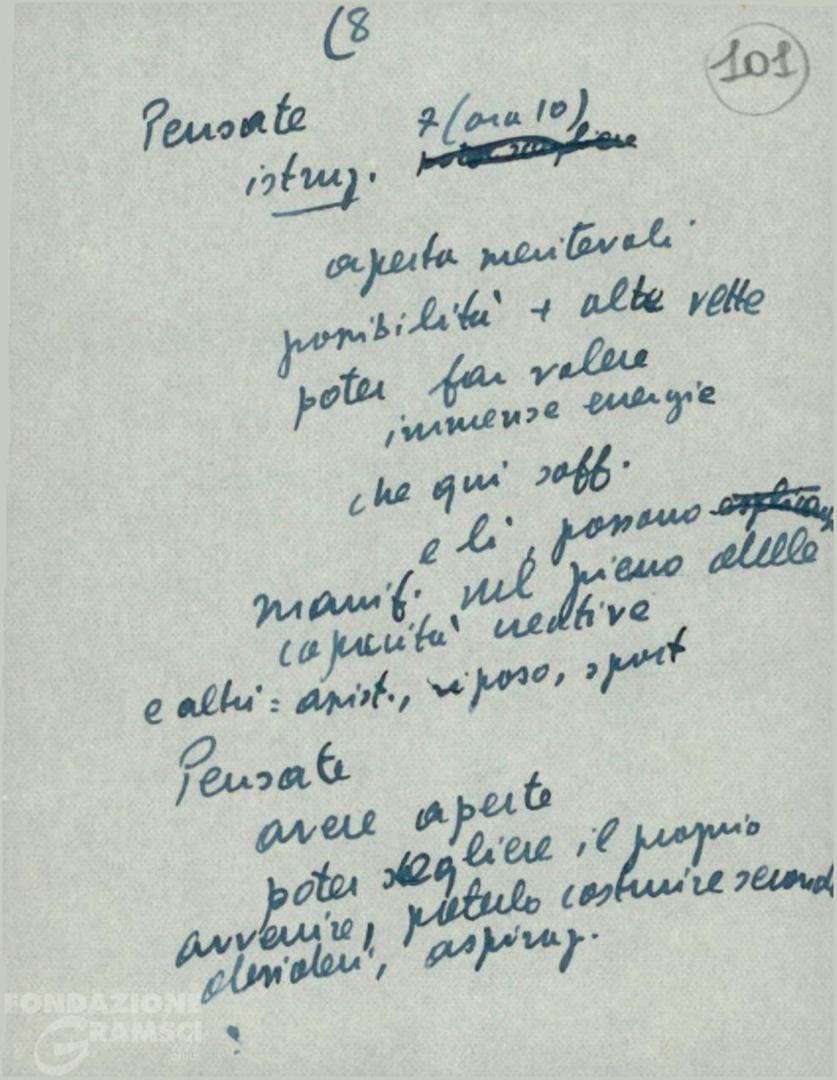 (8
101
Pensate 7 (ora 10)
istruz. poter scegliere
aperta meritevoli
possibilità + alte vette
poter far valere
immense energie
che qui soff.
e lì, possono
manif. nel pieno delle
capacità creative
e altri: assist., riposo, sport
Pensate
avere aperte
poter scegliere il proprio
avvenire, poterlo costruire second
desideri, aspiraz.
FONDAZIONE
GRAMSCI